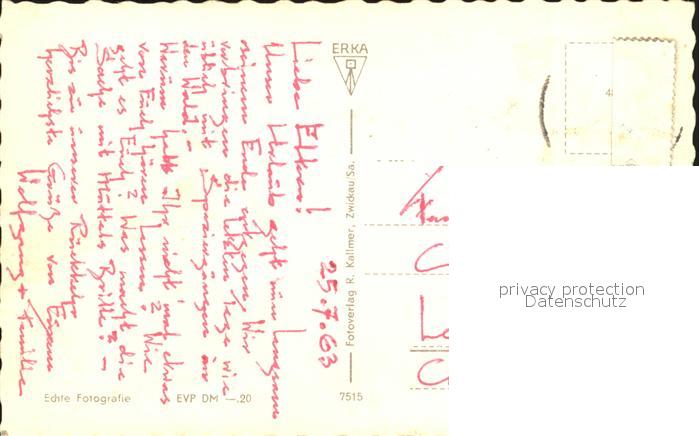 25.7.63
Liebe Eltern!
Unser Urlaub geht nun langsam
seinem Ende entgegen. Wir
verbringen die letzten Tage wie
üblich mit Spaziergängen in
den Wald. –
Warum habt Ihr nicht mal etwas
von Euch hören lassen? Wie
geht es Euch? Was macht die
Sache mit Muttels Brille? –
Bis zu unserer Rückkehr
herzlichste Grüße von Euren
Wolfgang + Familie
ERKA
Fotoverlag R. Kallmer, Zwickau/Sa.
Echte Fotografie
EVP DM —.20
7515
4
privacy protection
Datenschutz